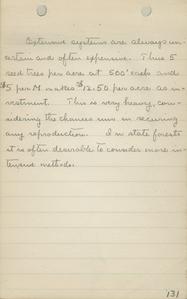 Extensive systems are always un-
certain and often expensive. Thus 5
seed trees per acre at 500' each and
$5 per M. makes $12.50 per acre as in-
vestment. This is very heavy, con-
sidering the chances run in securing
any reproduction. In state forests
it is often desirable to consider more in-
tensive methods.
131